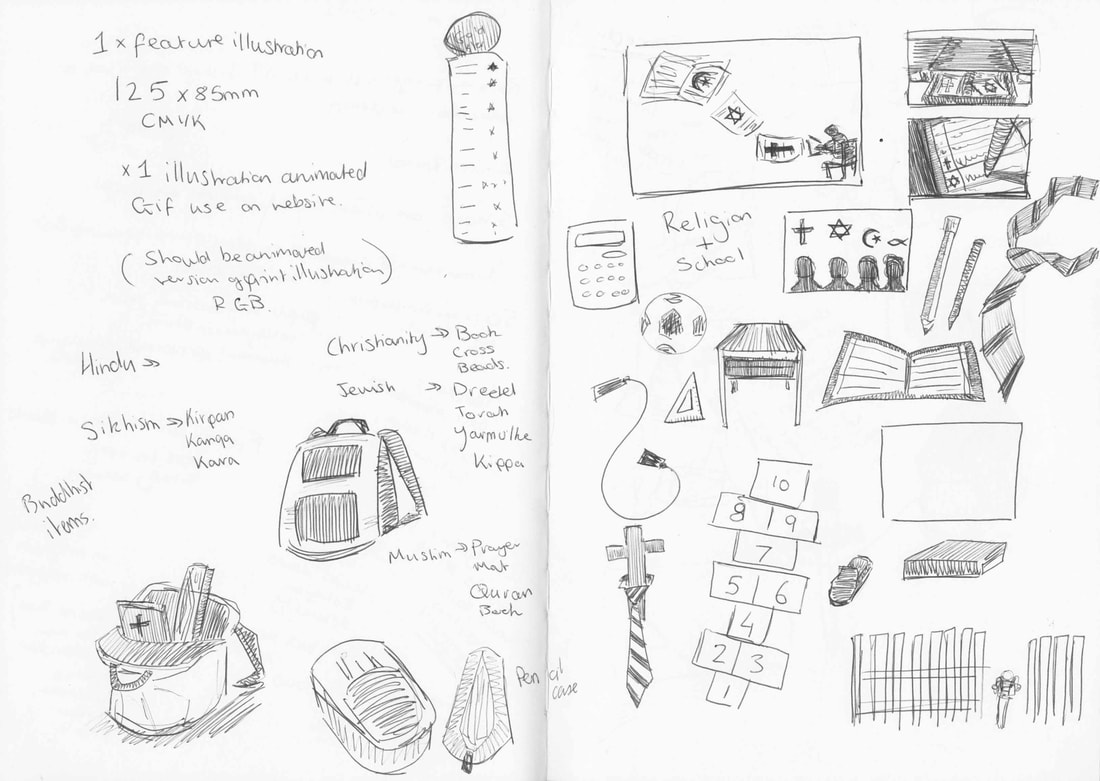 1 x feature illustration
125 x 85mm
CMYK
x 1 illustration animated
Gif use on website.
(Should be animated
version of print illustration)
RGB.
Hindu →
Sikhism → Kirpan
Kanga
Kara
Buddhist
items.
Christianity → Book
Cross
Beads.
Jewish → Dreidel
Torah
Yarmulke
Kippa
Muslim → Prayer
Mat
Quran
Book
Pencil
case
Religion
+
School
10
8 9
7
5 6
4
2 3
1